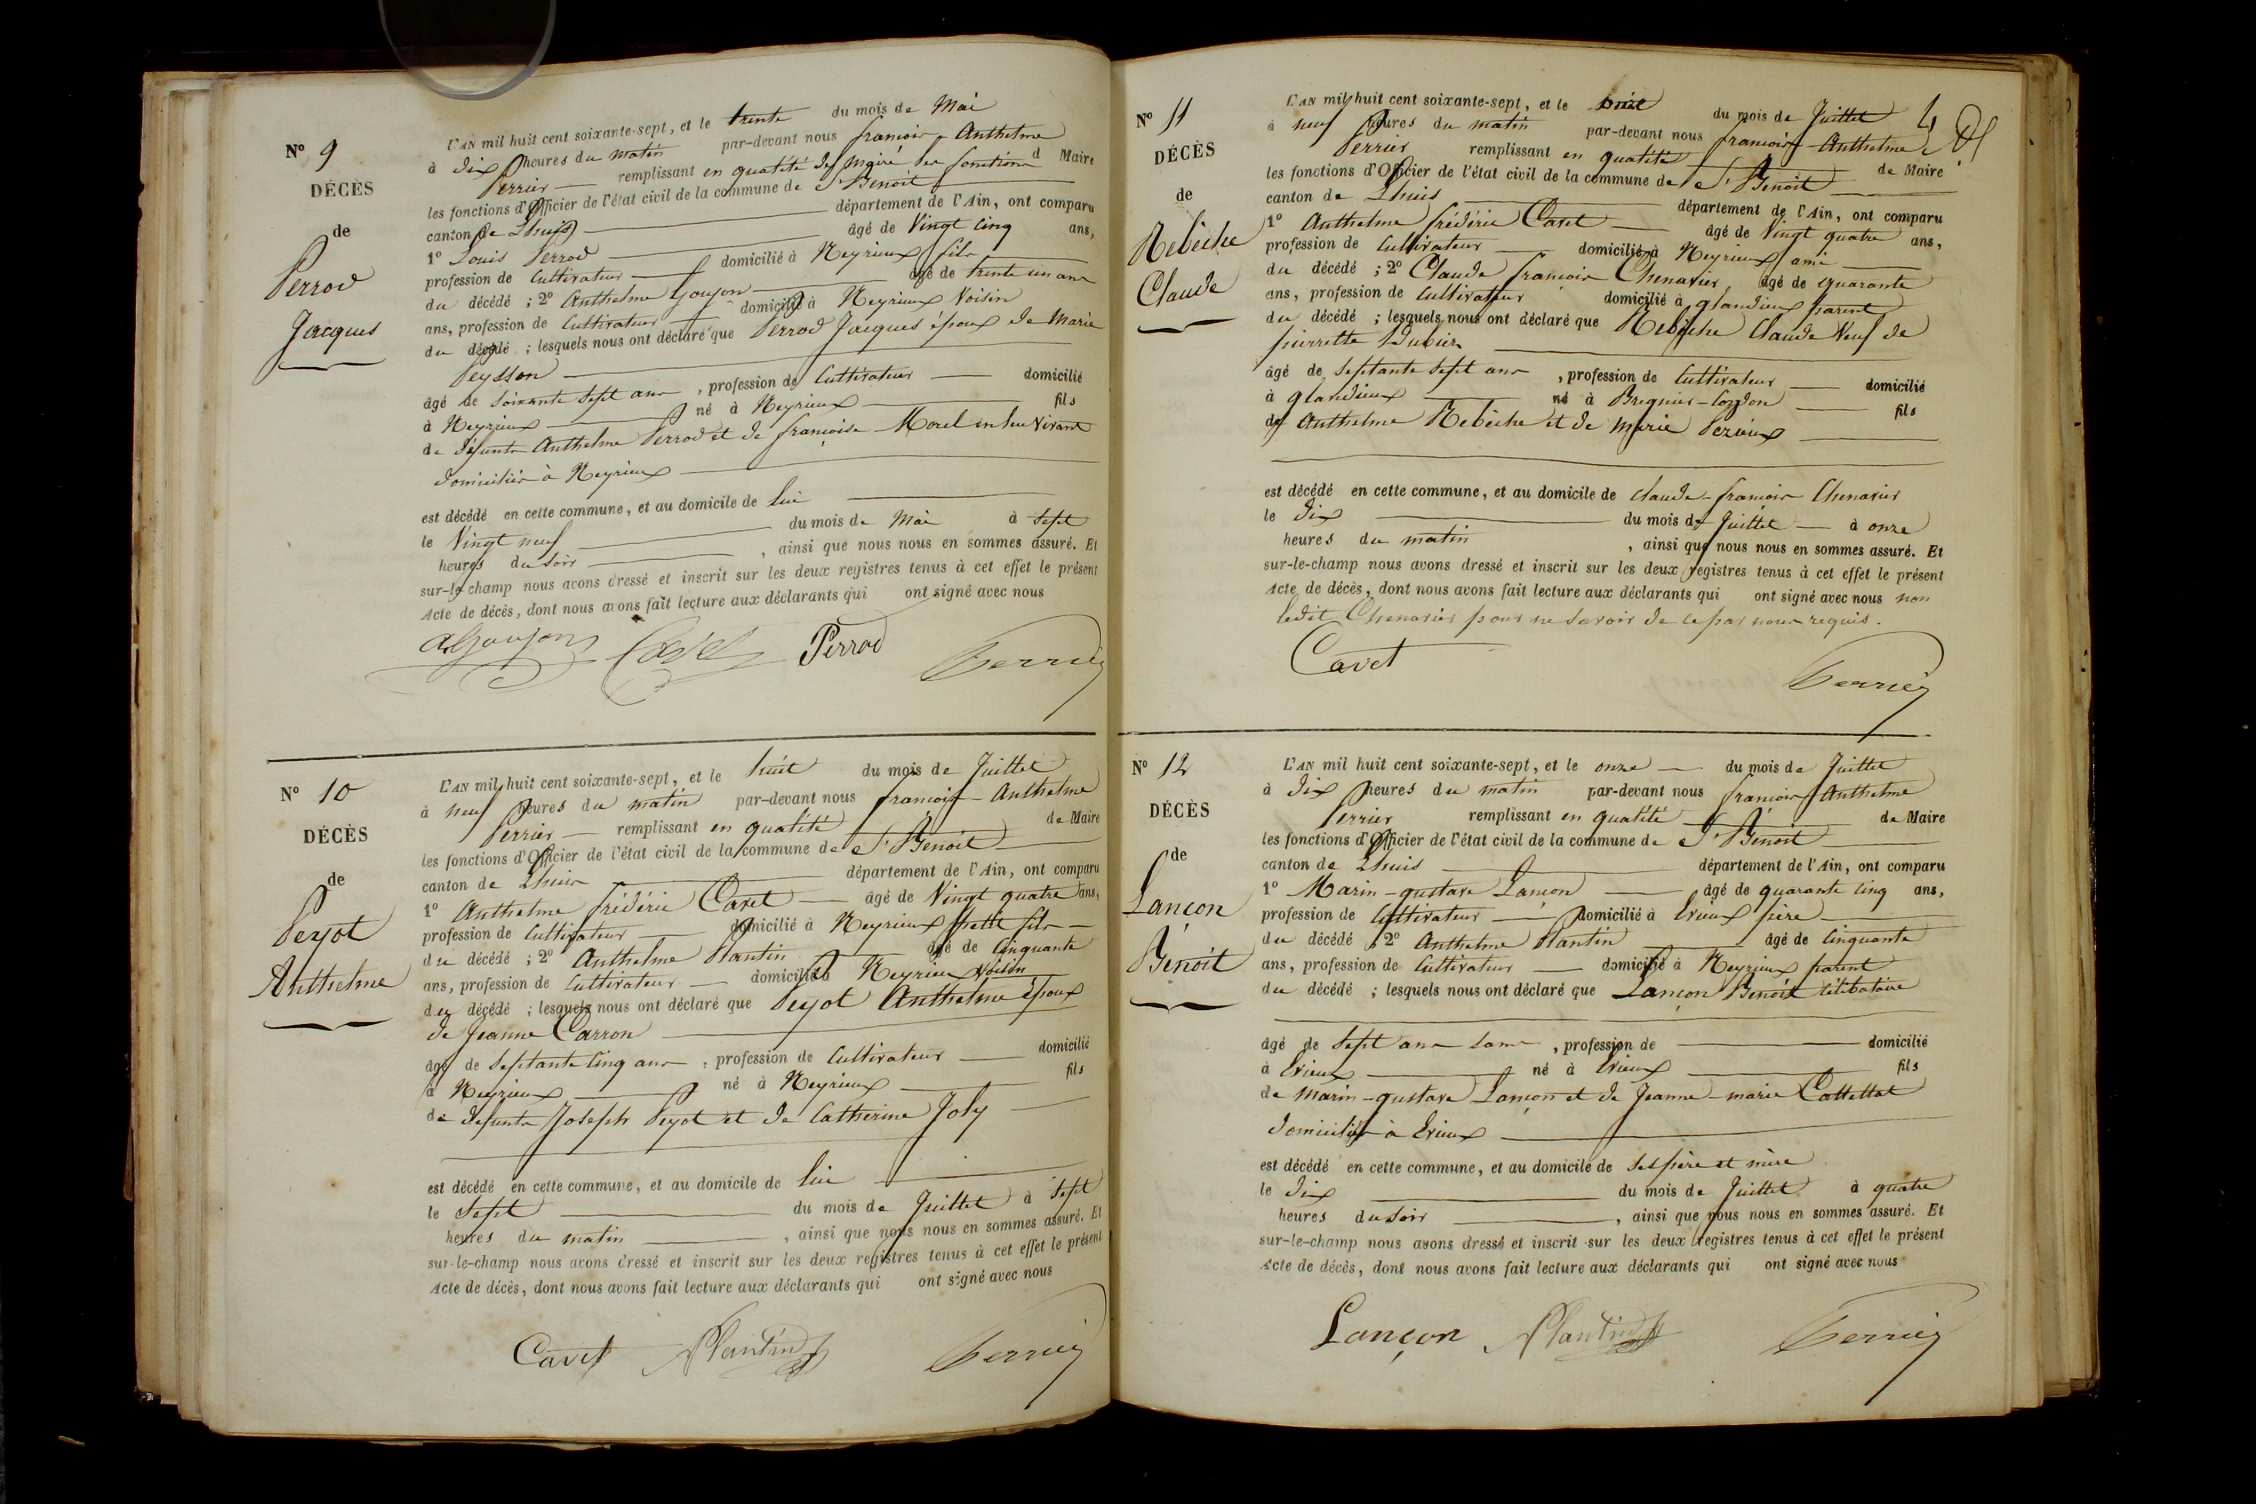 N° 9
DÉCÈS
de
Perrod
Jacques
L'AN mil huit cent soixante-sept, et le trente du mois de Mai
à dix heures du matin par-devant nous françois Anthelme
Perrier remplissant en qualité de Maire les fonctions d Maire
les fonctions d'Officier de l'état civil de la commune de St Benoit
canton de Lhuis département de l'Ain, ont comparu
1° Louis Perrod âgé de Vingt cinq ans,
profession de Cultivateur domicilié à Neyrieux fils
du décédé ; 2° Anthelme Goujon âgé de trente un ans
ans, profession de Cultivateur domicilié à Neyrieux Voisin
du décédé ; lesquels nous ont déclaré que Perrod Jacques époux de Marie
Peysson
âgé de soixante sept ans, profession de Cultivateur domicilié
à Neyrieux né à Neyrieux fils
de défunts Anthelme Perrod et de françoise Morel en leur vivant
domiciliés à Neyrieux
est décédé en cette commune, et au domicile de lui
le Vingt neuf du mois de Mai à Sept
heures du soir, ainsi que nous nous en sommes assuré. Et
sur-le-champ nous avons dressé et inscrit sur les deux registres tenus à cet effet le présent
Acte de décès, dont nous avons fait lecture aux déclarants qui ont signé avec nous
A Goujon Perrod Perrier
N° 10
DÉCÈS
de
Peyot
Anthelme
L'AN mil huit cent soixante-sept, et le huit du mois de Juillet
à neuf heures du matin par-devant nous françois-Anthelme
Perrier remplissant en qualité de Maire
les fonctions d'Officier de l'état civil de la commune de St Benoit
canton de Lhuis département de l'Ain, ont comparu
1° Anthelme frédéric Cavet âgé de Vingt quatre ans,
profession de Cultivateur domicilié à Neyrieux petit fils
du décédé ; 2° Anthelme Plantin âgé de Cinquante
ans, profession de Cultivateur domicilié à Neyrieux Voisin
du décédé ; lesquels nous ont déclaré que Peyot Anthelme époux
de Jeanne Carron
âgé de septante cinq ans, profession de Cultivateur domicilié
à Neyrieux né à Neyrieux fils
de défunts Joseph Peyot et de Catherine Joly
est décédé en cette commune, et au domicile de lui
le Sept du mois de Juillet à Sept
heures du matin, ainsi que nous nous en sommes assuré. Et
sur-le-champ nous avons dressé et inscrit sur les deux registres tenus à cet effet le présent
Acte de décès, dont nous avons fait lecture aux déclarants qui ont signé avec nous
Cavet Plantin Perrier
N° 11
DÉCÈS
de
Rebêche
Claude
L'AN mil huit cent soixante-sept, et le du mois de Juillet
à neuf heures du matin par-devant nous françois-Anthelme
Perrier remplissant en qualité de Maire
les fonctions d'Officier de l'état civil de la commune de St Benoit
canton de Lhuis département de l'Ain, ont comparu
1° Anthelme frédéric Cavet âgé de Vingt quatre ans,
profession de Cultivateur domicilié à Neyrieux ami
du décédé ; 2° Claude françois Chenavier âgé de quarante
ans, profession de Cultivateur domicilié à glandieux parent
du décédé ; lesquels nous ont déclaré que Rebêche Claude Veuf de
pierrette Dubier
âgé de septante sept ans, profession de Cultivateur domicilié
à glandieux né à Bregnier-Cordon fils
de Anthelme Rebêche et de Marie
est décédé en cette commune, et au domicile de Claude-françois Chenavier
le dix du mois de Juillet à onze
heures du matin, ainsi que nous nous en sommes assuré. Et
sur-le-champ nous avons dressé et inscrit sur les deux registres tenus à cet effet le présent
Acte de décès, dont nous avons fait lecture aux déclarants qui ont signé avec nous non
ledit Chenavier pour ne savoir de ce par nous requis.
Cavet Perrier
N° 12
DÉCÈS
de
Lançon
Benoit
L'AN mil huit cent soixante-sept, et le onze du mois de Juillet
à dix heures du matin par-devant nous françois Anthelme
Perrier remplissant en qualité de Maire
les fonctions d'Officier de l'état civil de la commune de St Benoit
canton de Lhuis département de l'Ain, ont comparu
1° Marin-gustave Lançon âgé de quarante cinq ans,
profession de Cultivateur domicilié à Evieux père
du décédé ; 2° Anthelme Plantin âgé de Cinquante
ans, profession de Cultivateur domicilié à Neyrieux parent
du décédé ; lesquels nous ont déclaré que Lançon Benoit célibataire
âgé de sept ans sans, profession de domicilié
à Evieux né à Evieux fils
de Marin-gustave Lançon et de Jeanne-marie Cattettat
domiciliés à Evieux
est décédé en cette commune, et au domicile de ses père et mère
le dix du mois de Juillet à quatre
heures du soir, ainsi que nous nous en sommes assuré. Et
sur-le-champ nous avons dressé et inscrit sur les deux registres tenus à cet effet le présent
Acte de décès, dont nous avons fait lecture aux déclarants qui ont signé avec nous
Lançon Plantin Perrier